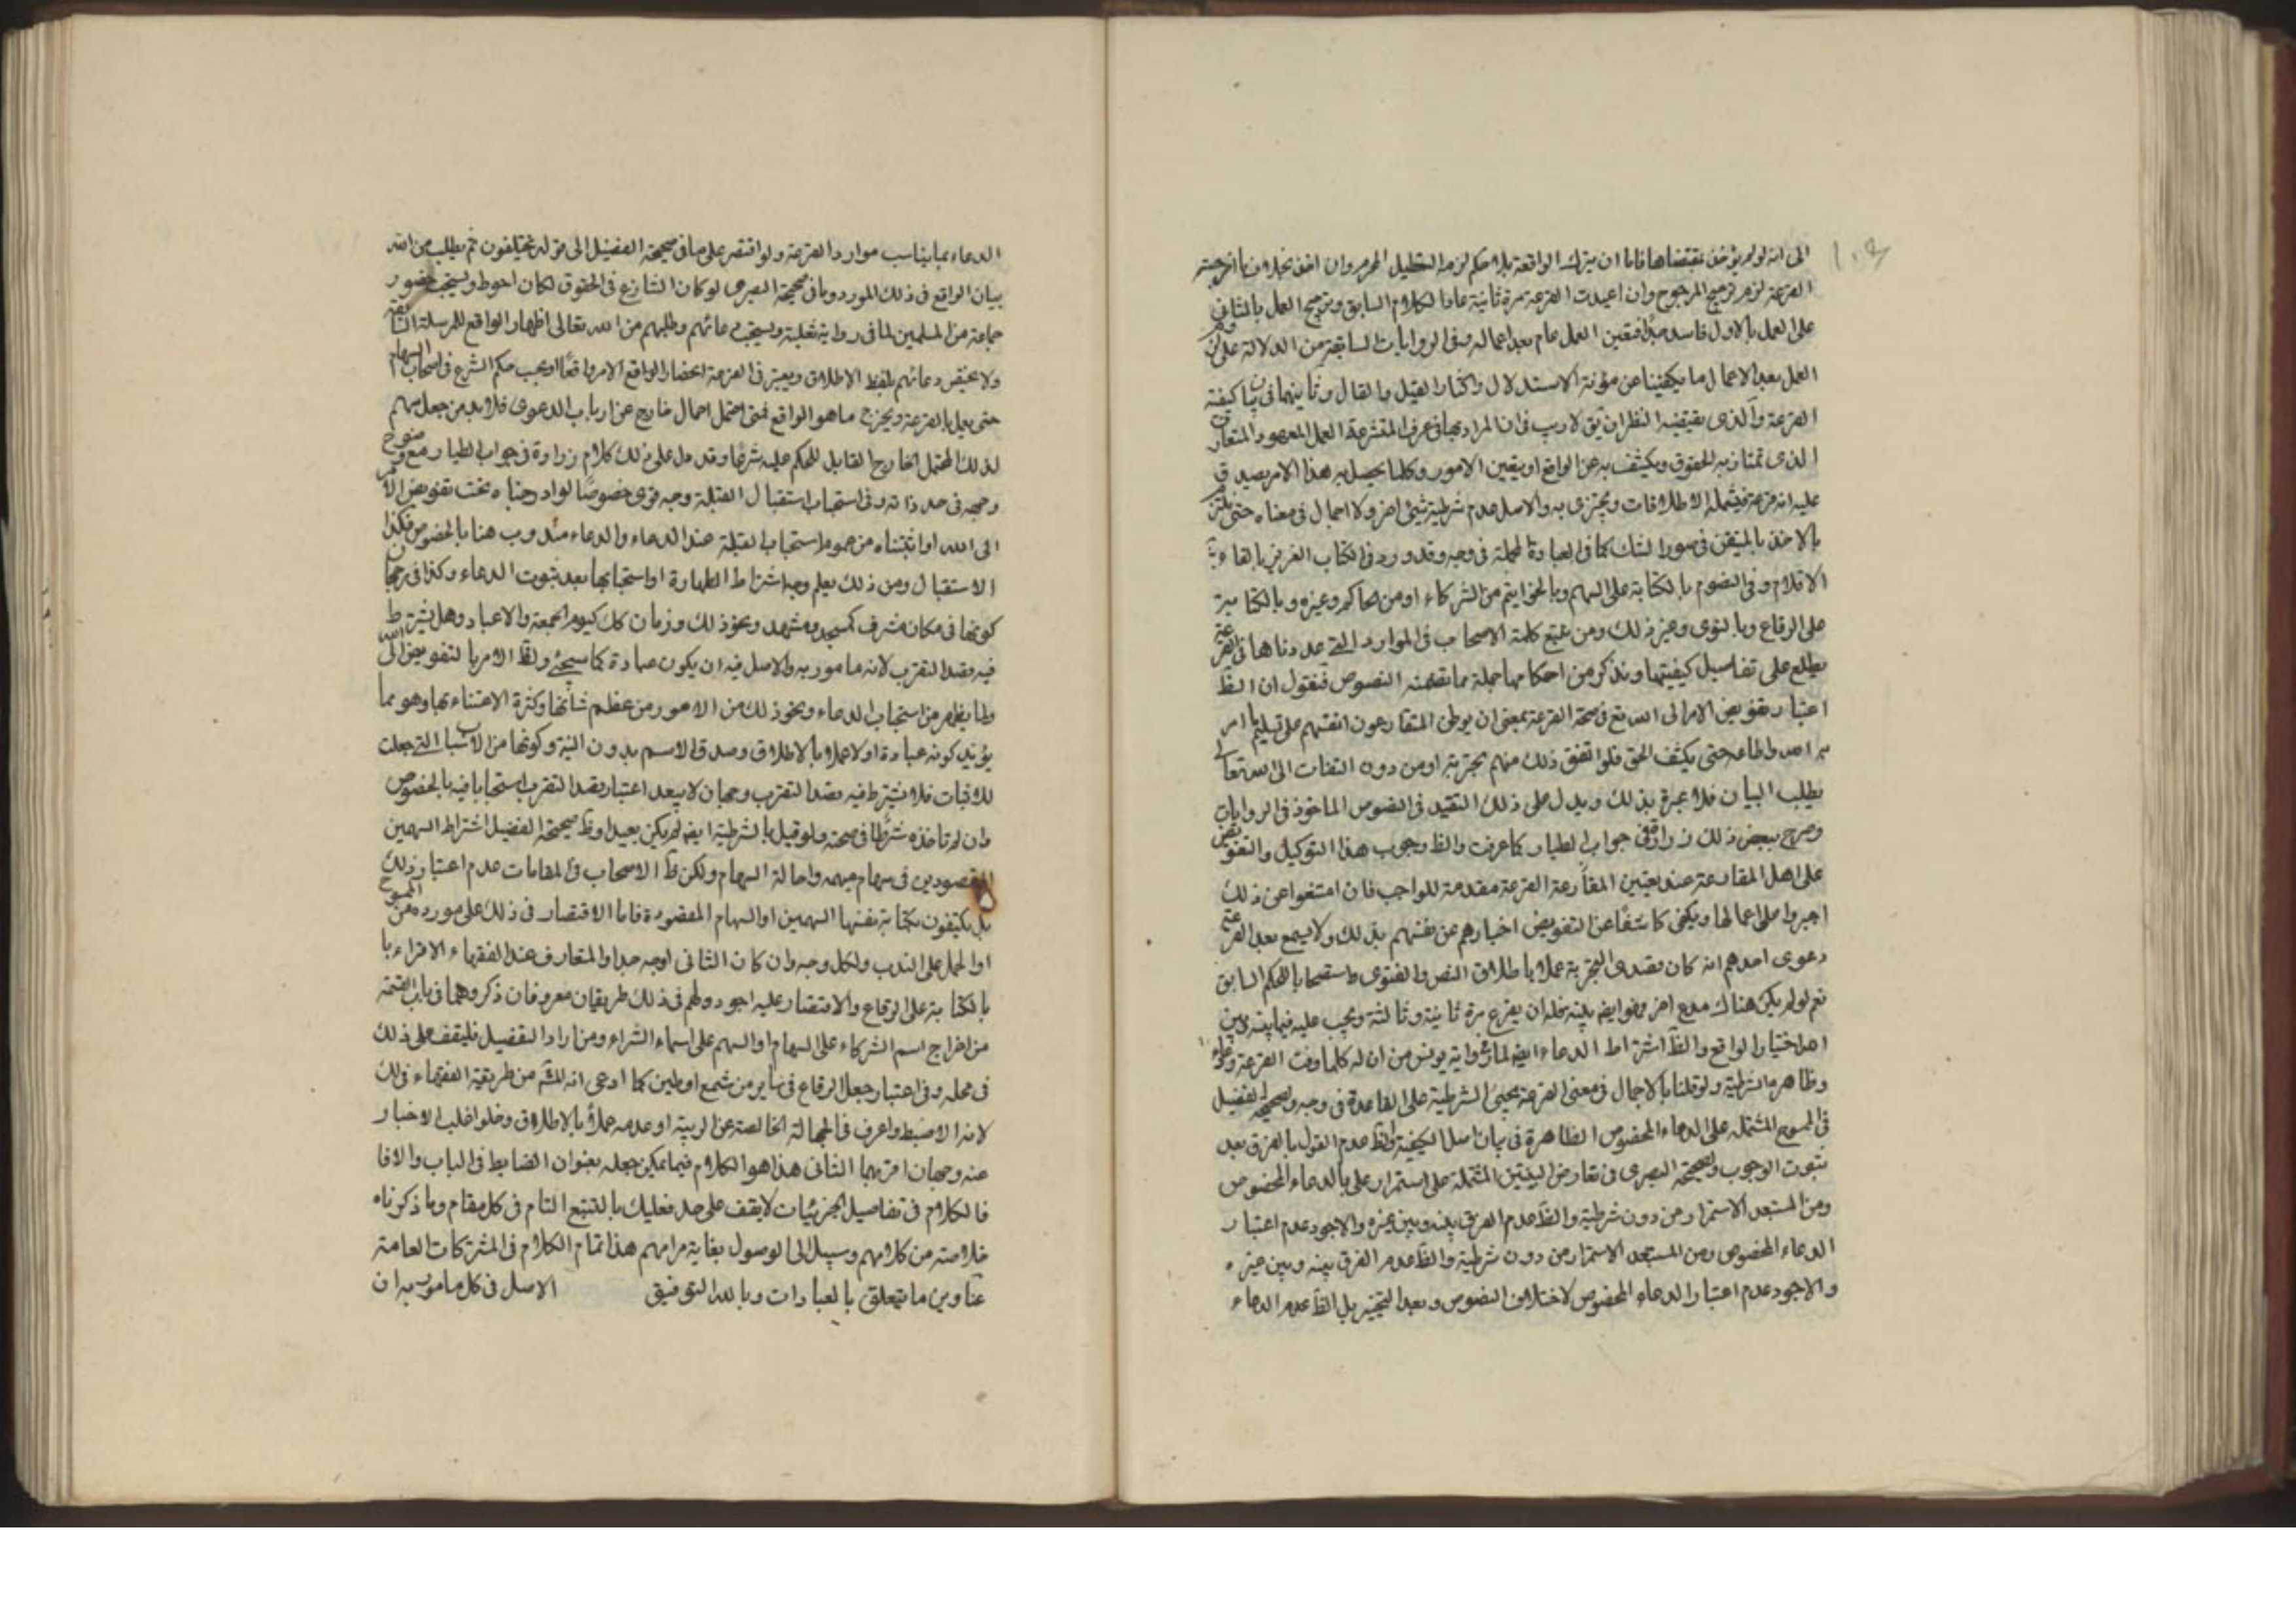 الى انه لو لم يؤخذ بمقتضاها فاما ان يترك الواقعة بلا حكم لزم التعطيل المحرم وان اخذ بخلاف ما اخرجته
القرعة لزم ترجيح المرجوح وان اعيدت القرعة مرة ثانية عاد الكلام السابق وترجيح العمل بالثاني
على العمل بالاول فاسد جدا فتعين العمل عام بعد اعماله وفي الروايات السابقة من الدلالة على
العمل بعد الاعمال ما يكفينا عن مؤنة الاستدلال واكثار القيل والقال وثانيهما في بيان كيفية
القرعة والذي يقتضيه النظر ان يق لا ريب في ان المراد بها في عرف المتشرعة العمل المعهود المتعارف
الذي تمتاز به الحقوق ويكشف به عن الواقع او يتعين الامور وكلما يحصل به هذا الامر يصدق
عليه انه قرعة فيشمله الاطلاقات ويجتزى به والاصل عدم شرطية شيء اخر ولا اجمال في معناه حتى يلتزم
بالاخذ بالمتيقن في صور الشك كما في العبادة المجملة في وجه وقد ورد في الكتاب العزيز بالقاء
الاقلام وفي النصوص بالكتابة على السهم وبالخواتيم من الشركاء او من الحاكم وغيره وبالكتابة
على الرقاع وبالنوى وغير ذلك ومن تتبع كلمة الاصحاب في الموارد التي عددناها في القرعة
يطلع على تفاصيل كيفيتها ونذكر من احكامها جملة مما تضمنه النصوص فنقول ان الظ
اعتبار تفويض الامر الى الله تع في صحة القرعة بمعنى ان يوطن المتقارعون انفسهم على تسليم ما امر
به الله واطاعه حتى يكشف الحق فلو اتفق ذلك منهم تجربة او من دون التفات الى الله تعالى
بطلب البيان فلا عبرة بذلك ويدل على ذلك التقيد في النصوص الماخوذ في الروايات
وصرح ببعض ذلك زرارة في جواب الطيار كما عرفت والظ وجوب هذا التوكيل والتفويض
على اهل المقارعة عند تعيين المقارعة القرعة مقدمة للواجب فان امتنعوا عن ذلك
اجبروا على اعمالها ويكفى كاشفا عن التفويض اخبارهم عن نفسهم بذلك ولا يسمع بعد القرعة
دعوى احدهم انه كان بقصد التجربة عملا باطلاق النص والفتوى واستصحابا للحكم السابق
نعم لو لم يكن هناك مدع اخر وهو ايضا بينه فله ان يقرع مرة ثانية وثالثة ويجب عليه فيما بينه وبين
الله اختيار الواقع والظ اشتراط الدعاء ايضا لما في رواية يونس من ان له كلما وقت القرعة ودعاء
وظاهره الشرطية ولو قلنا بالاجمال في معنى القرعة يجيئ الشرطية على القاعدة في وجه ولصحيحة الفضيل
في الممسوح المشتملة على الدعاء المخصوص الظاهرة في بيان اصل الكيفية والظ عدم القول بالفرق بعد
ثبوت الوجوب ولصحيحة البصرى في تعارض البينتين المشتملة على استمرار علي بالدعاء المخصوص
ومن المستبعد الاستمرار من دون شرطية والظ عدم الفرق بينه وبين غيره والاجود عدم اعتبار
الدعاء المخصوص ومن المستبعد الاستمرار من دون شرطية والظ عدم الفرق بينه وبين غيره
والاجود عدم اعتبار الدعاء المخصوص لاختلاف النصوص وبعد التخيير بل الظ عدم الدعاء
الدعاء بما يناسب موارد القرعة ولو اقتصر على ما في صحيحة الفضيل الى قوله يختلفون ثم يطلب من الله
بيان الواقع في ذلك المورد وما في صحيحة البصرى لو كان التنازع في الحقوق لكان احوط ويستحب حضور
جماعة من المسلمين لما في رواية ثعلبة ويستحب دعائهم وطلبهم من الله تعالى اظهار الواقع للمرسلة السابقة
ولا يعتبر دعائهم بلفظ الاطلاق ويعتبر في القرعة احضار الواقع الامر واقعا او بحسب حكم الشرع في اصحاب السهام
حتى يعمل بالقرعة ويخرج ما هو الواقع فمتى احتمل احمال خارج عن ارباب الدعوى فلا بد من جعل سهم
لذلك المحتمل الخارج القابل للحكم عليه شرعا وقد دل على ذلك كلام زرارة في جواب الطيار مع وضوح
وجهه في حد ذاته وفي استحباب استقبال القبلة وجه قوى خصوصا لو ادرجناه تحت تفويض الامر
الى الله او اثبتناه من عموم استحباب القبلة عند الدعاء والدعاء مندوب هنا بالخصوص فكذا
الاستقبال ومن ذلك يعلم وجه اشتراط الطهارة او استحبابها بعد ثبوت الدعاء وكذا في رجحان
كونها في مكان مشرف كمسجد ومشهد ونحو ذلك وزمان كك كيوم الجمعة والاعياد وهل يشترط
فيه قصد التقرب لانه مامور به والاصل فيه ان يكون عبادة كما سيجئ ولظ الامر بالتفويض الى الله
ولما يظهر من استحباب الدعاء ونحو ذلك من الامور من عظم شانها وكثرة الاعتناء بها وهو مما
يؤيد كونه عبادة اولا عملا بالاطلاق وصدق الاسم بدون النية وكونها من الاسباب التي جعلت
للاثبات فلا يشترط فيه قصد التقرب وجهان لا يبعد اعتبار قصد التقرب استحبابا فيه بالخصوص
وان لم تاخذه شرطا في صحته ولو قيل بالشرطية ايضا لم يكن بعيدا وظ صحيحة الفضيل اشتراط السهمين
المقصودين في سهام مبهمة واحالة السهام ولكن ظ الاصحاب في المقامات عدم اعتبار ذلك
بل يكتفون بكتابة نفسها السهمين او السهام المقصودة فاما الاقتصار في ذلك على مورده من الممسوح
او الحمل على الندب ولكل وجه وان كان الثاني اوجه جدا والمتعارف عند الفقهاء الاقراع
بالكتابة على الرقاع والاقتصار عليه اجود ولهم في ذلك طريقان معروفان ذكروهما في باب القسمة
من اخراج اسم الشركاء على السهام او السهم على اسماء الشركاء ومن اراد التفصيل فليقف على ذلك
في محله وفي اعتبار جعل الرقاع في ساتر من شمع او طين كما ادعى انه من طريقة الفقهاء في ذلك
لانه الاضبط واعرف في الجهالة الخالصة عن الريبة او عدمه عملا بالاطلاق وخلو اغلب الاخبار
عنه وجهان اقربهما الثاني هذا هو الكلام فيما يمكن جعله بعنوان الضابط في الباب والا
فالكلام في تفاصيل الجزئيات لا يقف على حد فعليك بالتتبع التام في كل مقام وما ذكرناه
خلاصته من كلامهم وسبيل الى الوصول بغاية مرامهم هذا تمام الكلام في المشتركات العامة
عناوين ما يتعلق بالعبادات وبالله التوفيق الاصل في كل مامور به ان